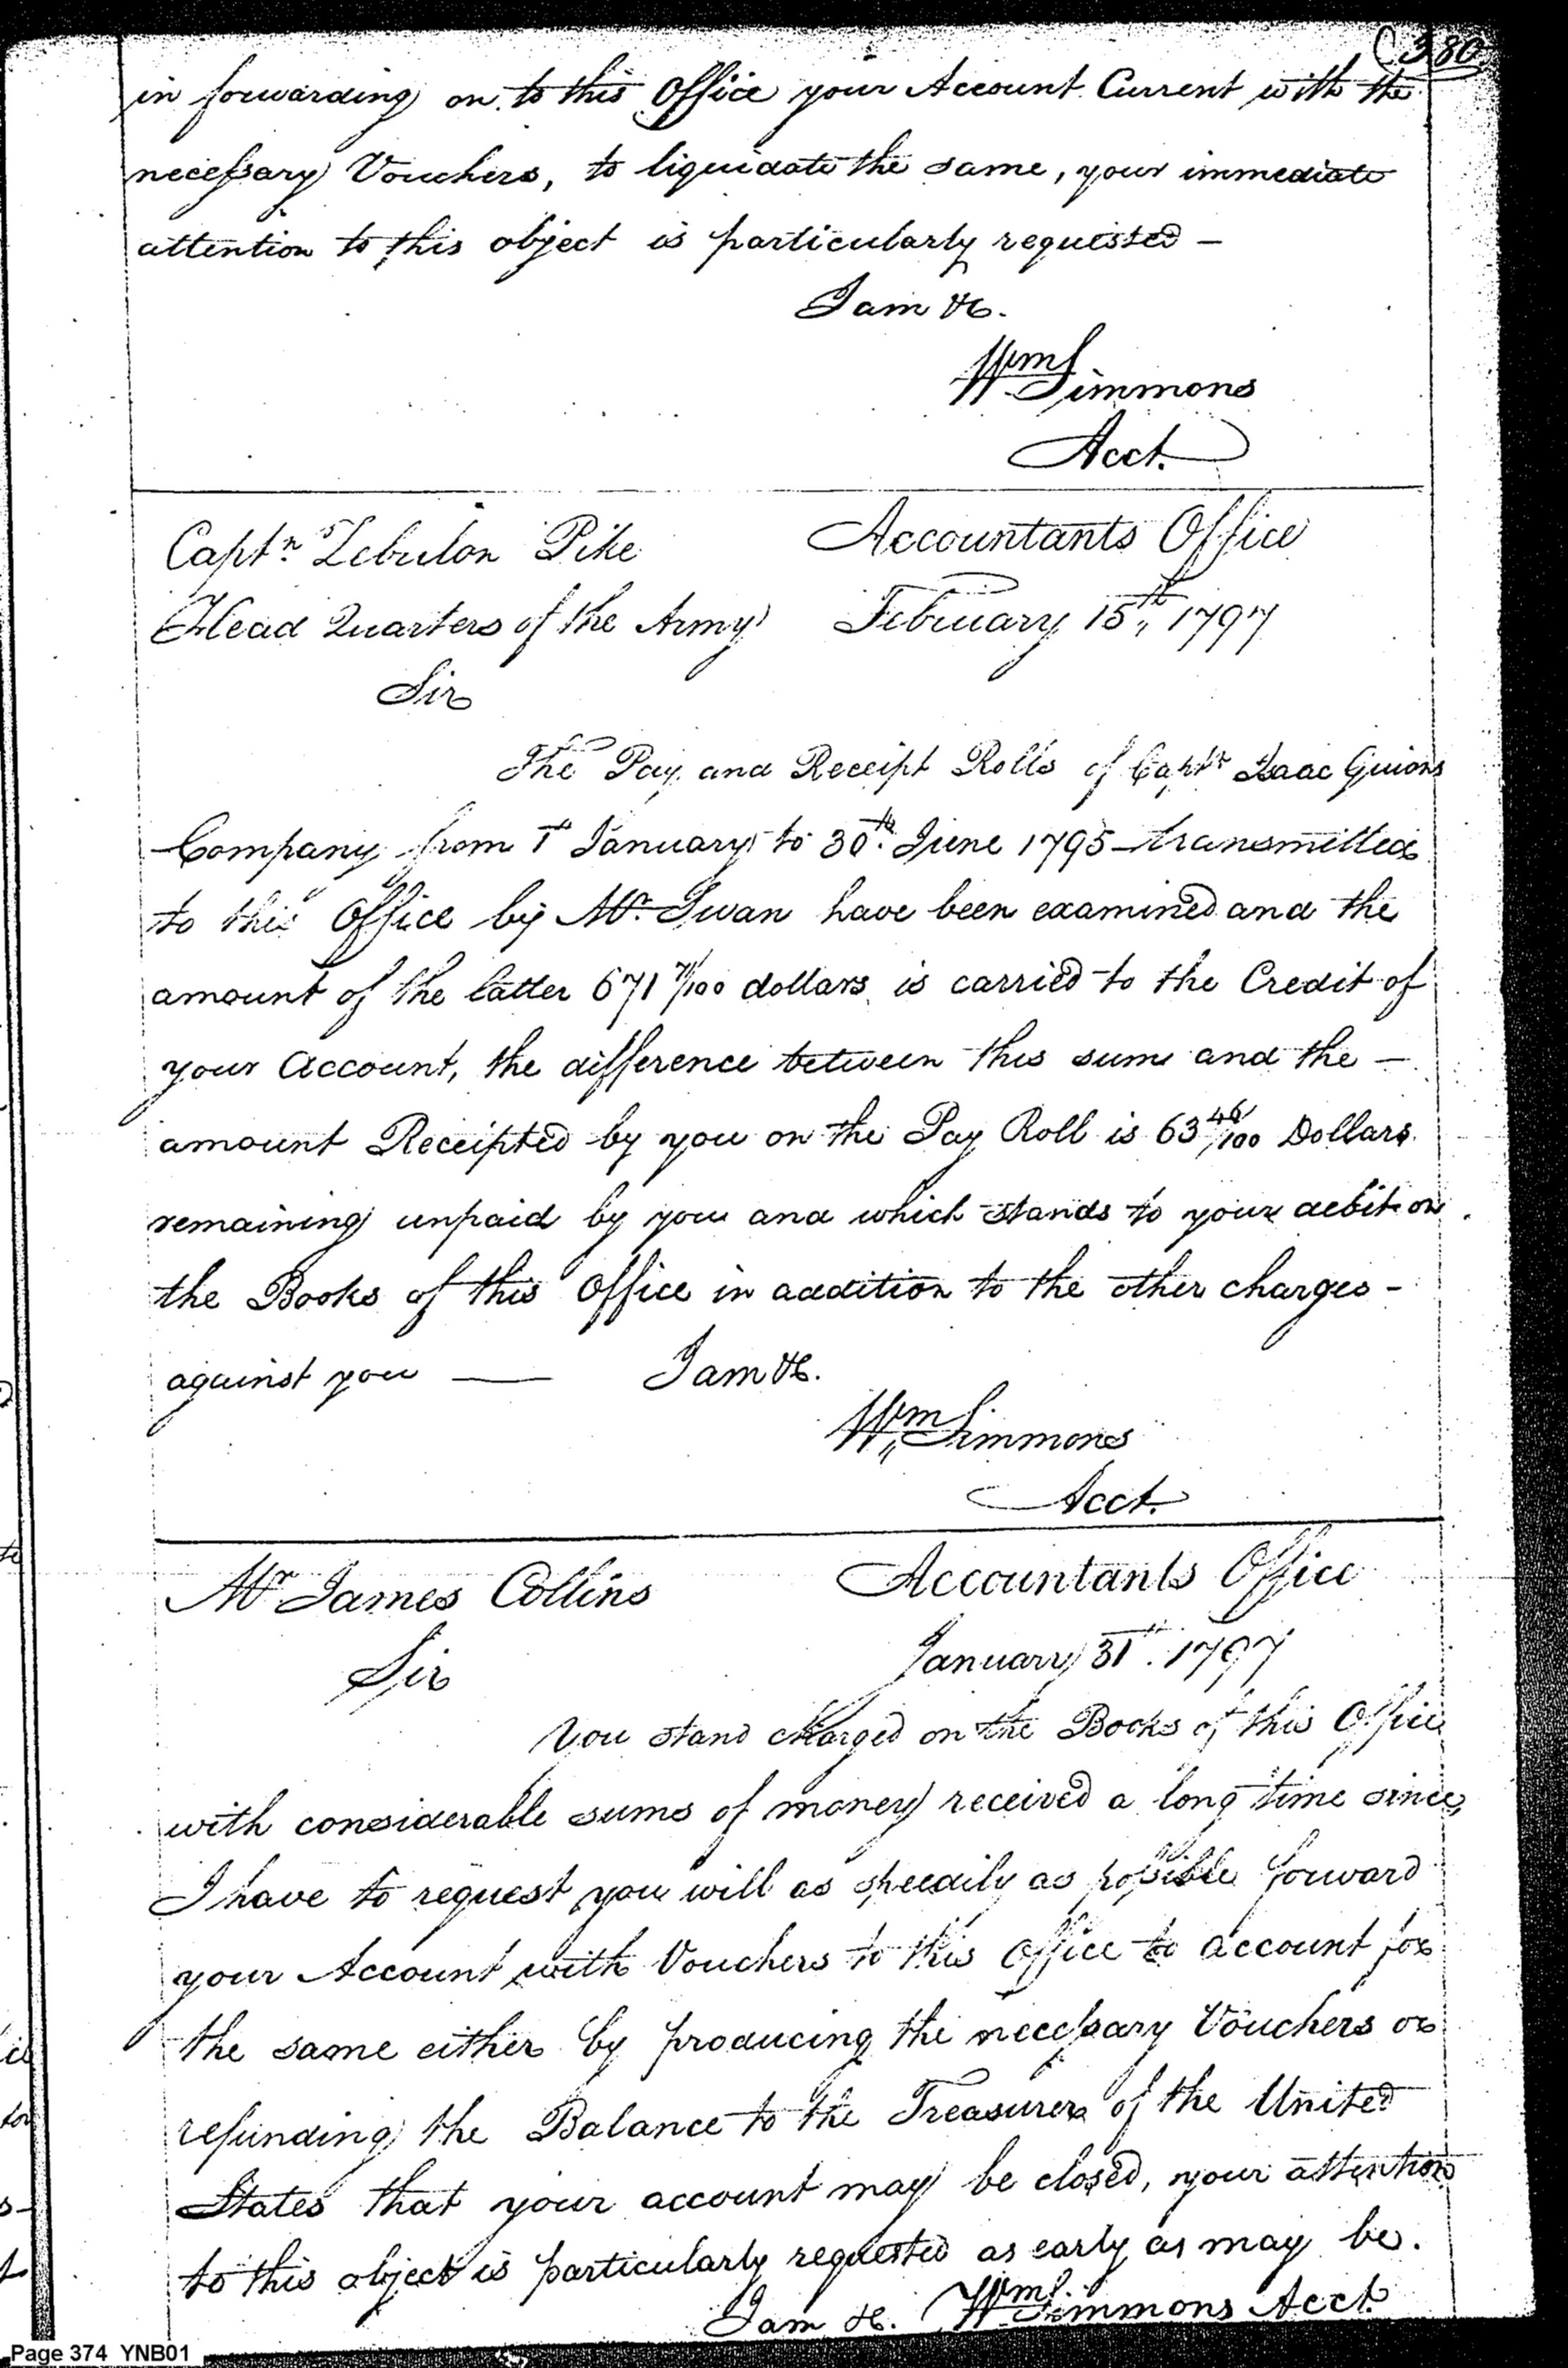 (380
in forwarding on to this Office your Account Current with the
necessary Vouchers, to liquidate the same, your immediate
attention to this object is particularly requested —
I am &c.
Wm Simmons
Acct.
Captn Zebulon Pike Accountants Office
Head Quarters of the Army February 15th, 1797
Sir
The Pay and Receipt Rolls of Captn Isaac Guions
Company from 1st January to 30th June 1795 transmitted
to this Office by Mr. Swan have been examined and the
amount of the latter 671 71/100 dollars is carried to the Credit of
your Account, the difference between this sum and the —
amount Receipted by you on the Pay Roll is 63 46/100 Dollars
remaining unpaid by you and which stands to your debit on
the Books of this Office in addition to the other charges -
against you —— I am &c.
Wm Simmons
Acct.
Mr James Collins Accountants Office
Sir January 31st. 1797
You stand charged on the Books of this Office
with considerable sums of money received a long time since,
I have to request you will as speedily as possible forward
your Account with Vouchers to this Office to account for
the same either by producing the necessary Vouchers or
refunding the Balance to the Treasurer of the United
States that your account may be closed, your attention
to this object is particularly requested as early as may be.
I am &c. Wm Simmons Acct.
Page 374 YNB01